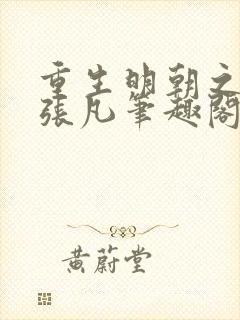 重生明朝之
張凡筆趣閣
黃蔚堂